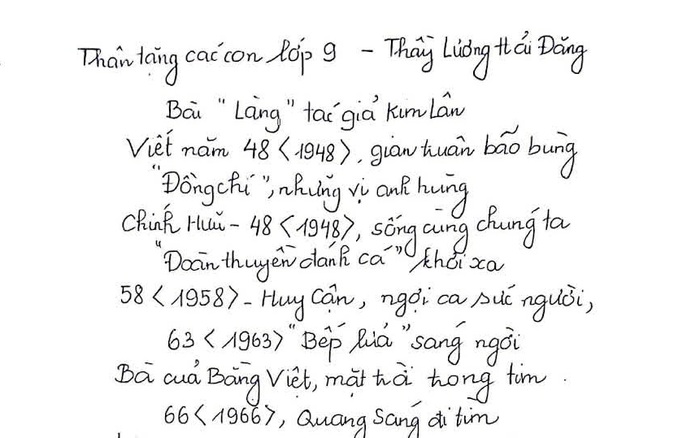 Thân tặng các con lớp 9 - Thầy Lương Hải Đăng
Bài "Làng" tác giả Kim Lân
Viết năm 48 <1948>, gian truân bão bùng
"Đồng chí", những vị anh hùng
Chính Hữu - 48 <1948>, sống cùng chúng ta
"Đoàn thuyền đánh cá" khơi xa
58 <1958> - Huy Cận, ngợi ca sức người,
63 <1963> "Bếp lửa" sáng ngời
Bà của Bằng Việt, mặt trời trong tim.
66 <1966>, Quang Sáng đi tìm